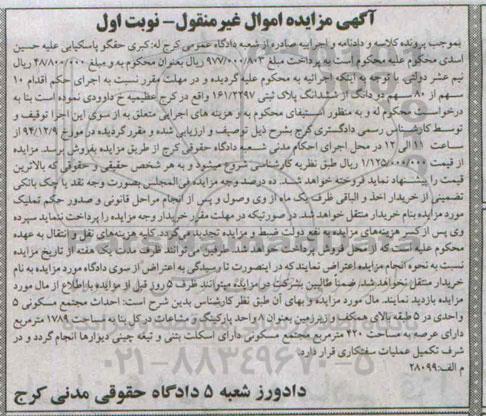 آگهی مزایده اموال غیر منقول - نوبت اول
بموجب پرونده کلاسه و دادنامه و اجراییه صادره از شعبه دادگاه عمومی کرج له: کبری حقگو پاسکیابی علیه حسین
اسدی محکوم علیه محکوم است به پرداخت مبلغ 977/000/803 ریال بعنوان محکوم به و مبلغ 48/800/000 ریال
نیم عشر دولتی با توجه به اینکه اجرائیه به محکوم علیه گردیده و در مهلت مقرر نسبت به اجرای حکم اقدام 10
سهم از 80 سهم دو دانگ از ششدانگ پلاک ثبتی 161/2297 واقع در کرج عظیمیه خ داوودی نموده است بنا به
درخواست محکوم له و به منظور استیفای محکوم به و هزینه های اجرایی متعلق به از سوی این اجرا توقیف و
توسط کارشناس رسمی دادگستری کرج بشرح ذیل توصیف و ارزیابی شده و مقرر گردیده در مورخ 94/12/9 از
ساعت 11 الی 12 در محل اجرای احکام مدنی شعبه دادگاه حقوقی کرج از طریق مزایده بفروش برسد. مزایده
از قیمت 1/125/000/000 ریال طبق نظریه کارشناسی شروع میشود و به هر شخص حقیقی و حقوقی که بالاترین
قیمت را پیشنهاد نماید فروخته خواهد شد. ده درصد وجه مزایده فی المجلس بصورت وجه نقد یا چک بانکی
تضمینی از خریدار اخذ و الباقی ظرف یک ماه از وی وصول و پس از انجام مراحل قانونی و صدور حکم تملیک
مورد مزایده بنام خریدار منتقل خواهد شد. در صورتیکه در مهلت مقرر خریدار وجه مزایده را پرداخت ننماید سپرده
وی پس از کسر هزینه های مزایده به نفع دولت ضبط و مزایده تجدید می گردد. کلیه هزینه های نقل و انتقال به عهده
محکوم علیه است که از محل فروش پرداخت خواهد شد. طرفین می توانند ظرف مدت یک هفته از تاریخ مزایده
نسبت به نحوه انجام مزایده اعتراض نمایند که در اینصورت تا رسیدگی به اعتراض از سوی دادگاه مورد مزایده به نام
خریدار منتقل نخواهد شد. ضمنا طالبین بشرکت در مزایده میتوانند ظرف 5 روز قبل از مزایده با اطلاع از مال مورد
مزایده بازدید نمایند. مال مورد مزایده و بهای آن طبق نظر کارشناس بدین شرح است: احداث مجتمع مسکونی 5
واحدی در 5 طبقه بالای همکف و زیرزمین بعنوان 8 واحد پارکینگ و مشاعات در کل بنا به مساحت 1789 مترمربع
دارای عرصه به مساحت 420 مترمربع مجتمع مسکونی دارای اسکلت بتنی و تیغه چینی دیوارها انجام گردد و در
شرف تکمیل عملیات سفتکاری قرار دارد.
م الف: 28099
021-88349670-5
دادورز شعبه 5 دادگاه حقوقی مدنی کرج